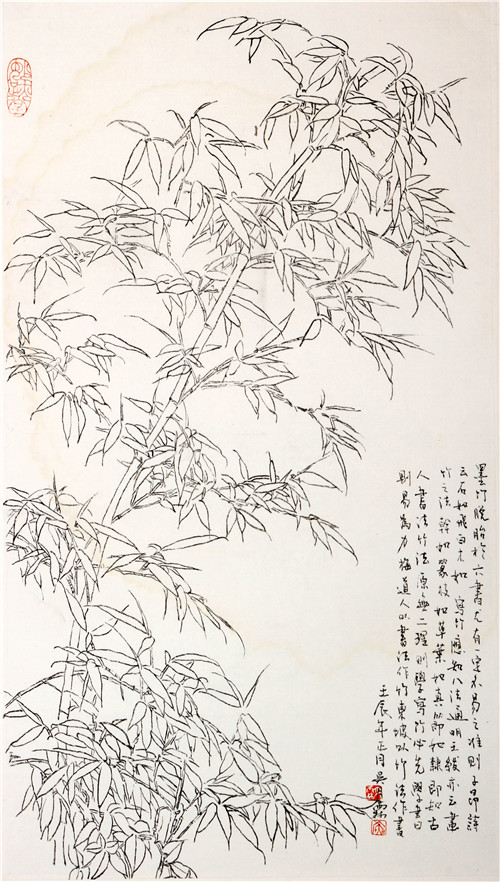 墨竹脱胎於六書尤有一定不易之准則子昂詩
云石如飛白木如寫竹應知八法通明王紱亦云畫
竹之法幹如篆枝如草葉如真節如隸即如古
人書法竹法原無二理則學寫竹先學書
則易為力梅道人以書法作竹東坡以竹法作書
壬辰年正月吳霖